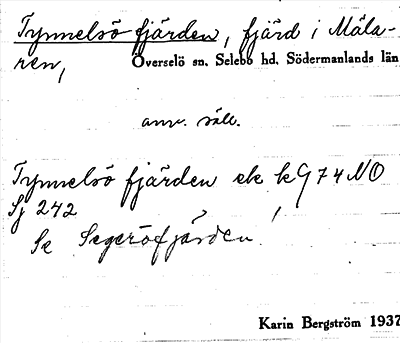 Tynnelsö fjärden, fjärd i Mäla-
ren,
Överselö sn. Selebo hd. Södermanlands län
anv. säll.
Tynnelsö fjärden ek k G 74 NO
Sj 242
Se Segeröfjärden!
Karin Bergström 1937